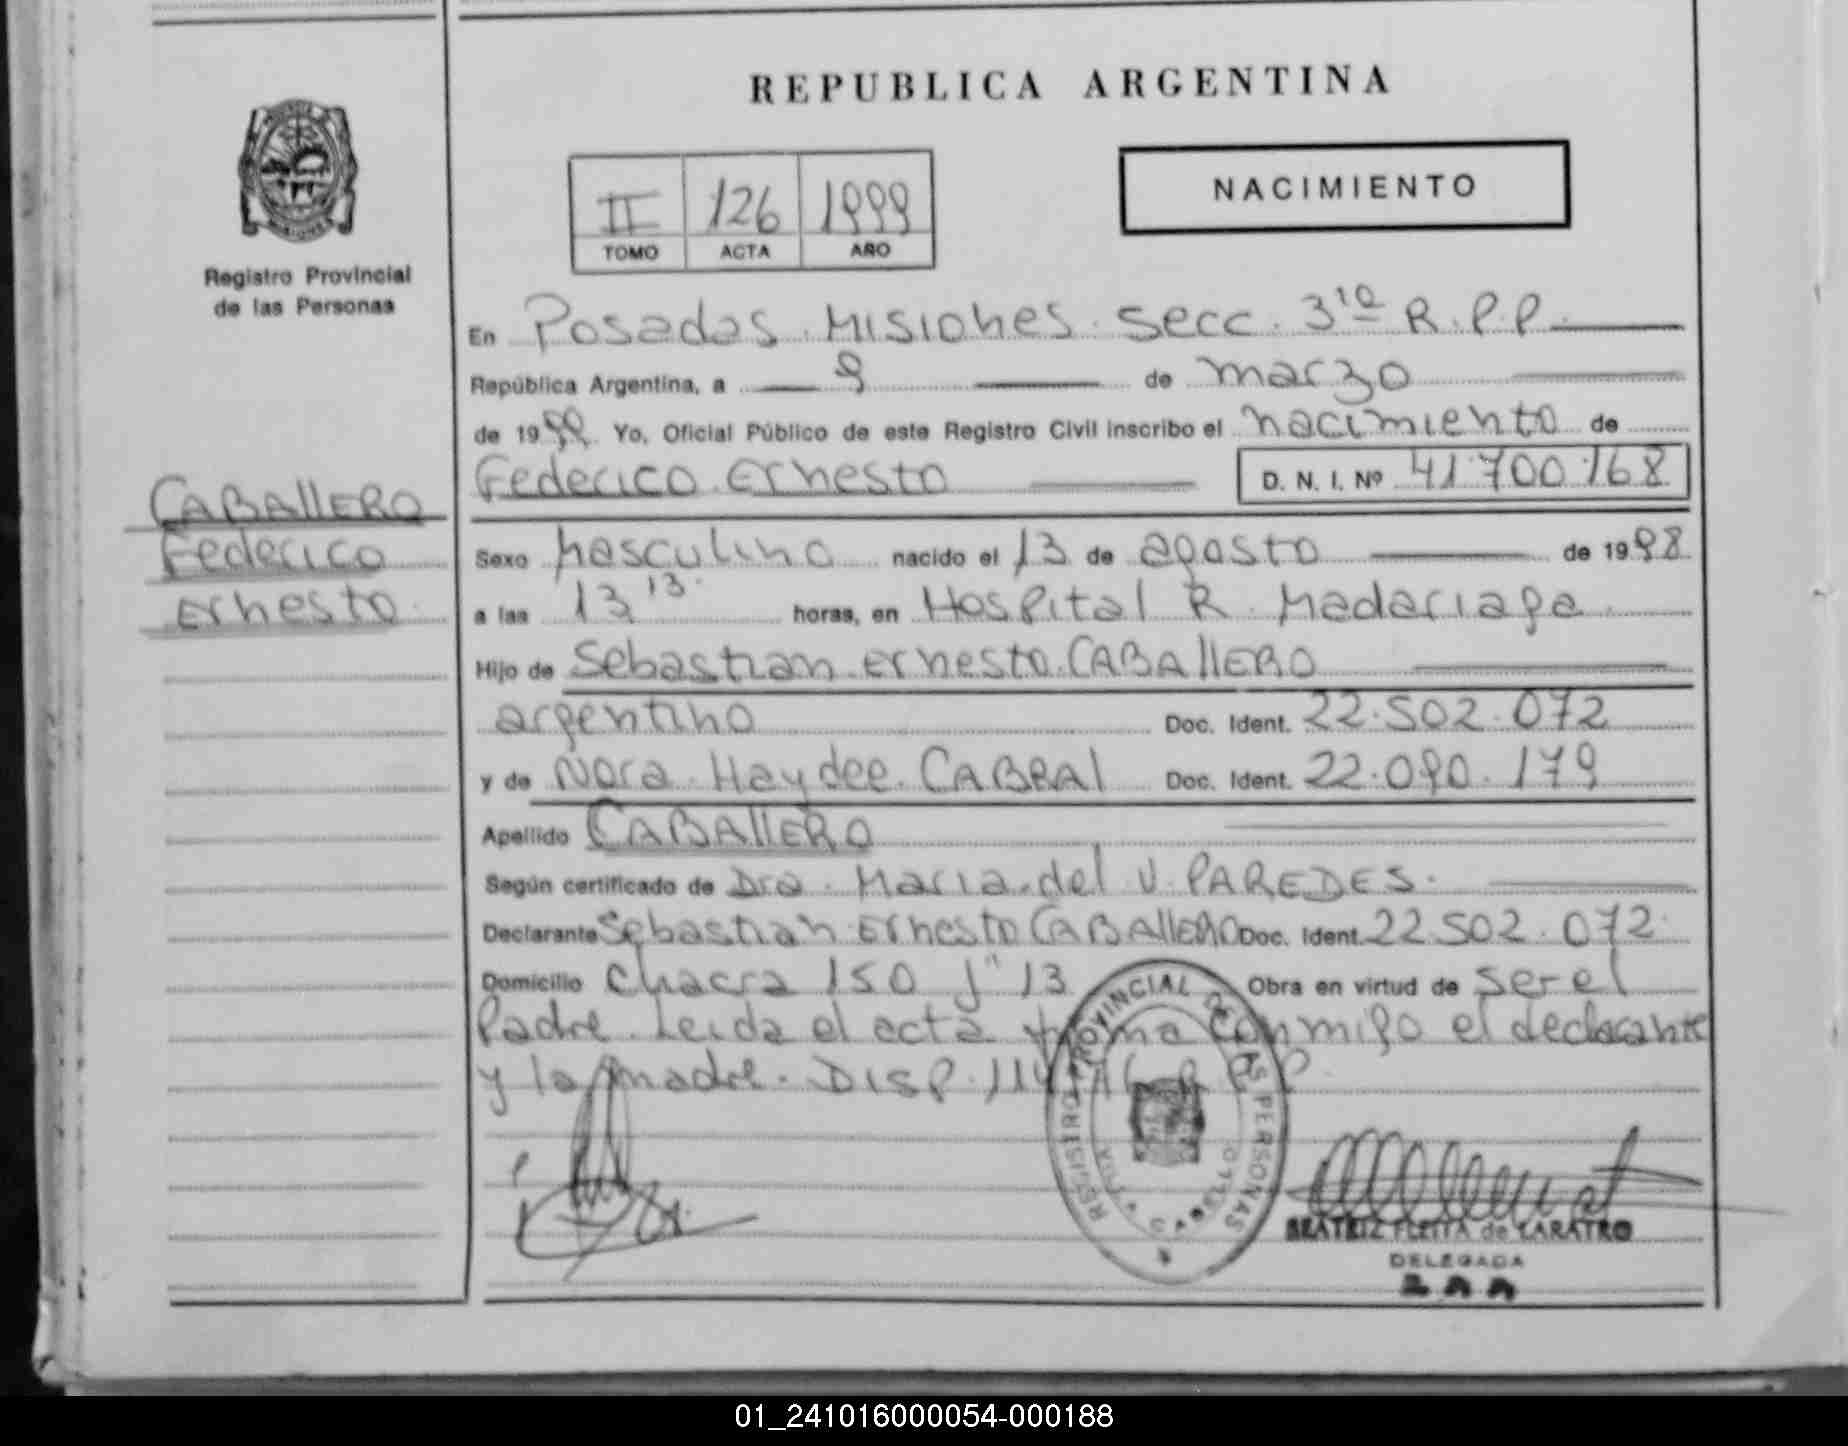 REPUBLICA ARGENTINA
Registro Provincial
de las Personas
II 126 1999
TOMO ACTA AÑO
NACIMIENTO
En Posadas Misiones secc. 3ra R.P.P.
República Argentina, a 9 de marzo
de 1999 Yo, Oficial Público de este Registro Civil inscribo el nacimiento de
Federico Ernesto D. N. I. Nº 41.700.168
CABAllERO
Federico
Ernesto
Sexo Masculino nacido el 13 de agosto de 1998
a las 13 13 horas, en Hospital R. Madariaga
Hijo de Sebastian Ernesto CABAllERO
argentino Doc. Ident. 22.502.072
y de Nora Haydee CABRAl Doc. Ident. 22.090.179
Apellido CABAllERO
Según certificado de Dra. Maria del V. PAREDES.
Declarante Sebastian Ernesto CABAllERO Doc. Ident. 22.502.072
Domicilio Chacra 150 13 Obra en virtud de ser el
Padre. Leida el acta conmigo el declarante
y la madre. DISP.
REGISTRO PROVINCIAL DE LAS PERSONAS
BEATRIZ FLEITA de LARATRO
DELEGADA
01_241016000054-000188